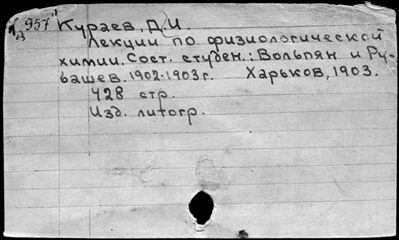 957 Кураев, Д.И.
Лекции по физиологической
химии. Сост. студен.: Вольпян и Ру-
башев. 1902-1903 г. Харьков, 1903.
428 стр.
Изд. литогр.